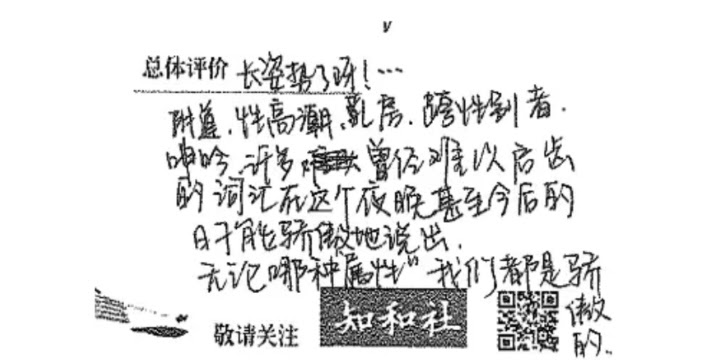 v
总体评价 长姿势了呀!…
阴道、性高潮、乳房、跨性别者、
呻吟、许多曾经难以启齿
的词汇在这个夜晚甚至今后的
日子能骄傲地说出.
无论哪种属性"我们都是骄
傲
的..
敬请关注 知和社